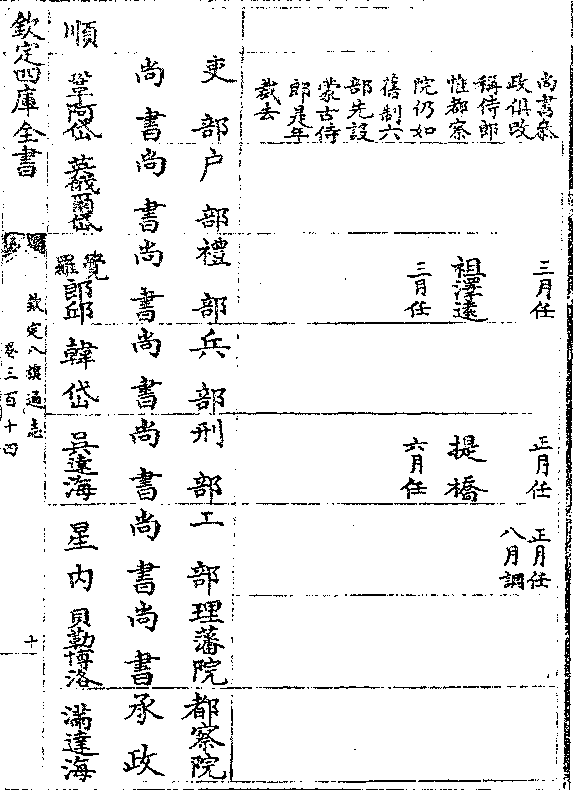 尚書叅
政俱改
稱侍郎
惟都察
院仍如
舊制六
部先設
蒙古侍
郎是年
裁去
三月任
祖澤遠
三月任
正月任
提橋
六月任
正月任
八月調
吏部
尚書
户部
尚書
禮部
尚書
兵部
尚書
刑部
尚書
工部
尚書
理藩院
尚書
都察院
承政
順
鞏阿岱
英俄爾岱
覺羅郎邱
韓岱
吳達海
星内
貝勒博洛
滿達海
欽定四庫全書
欽定八旗通志
卷三百十四
十